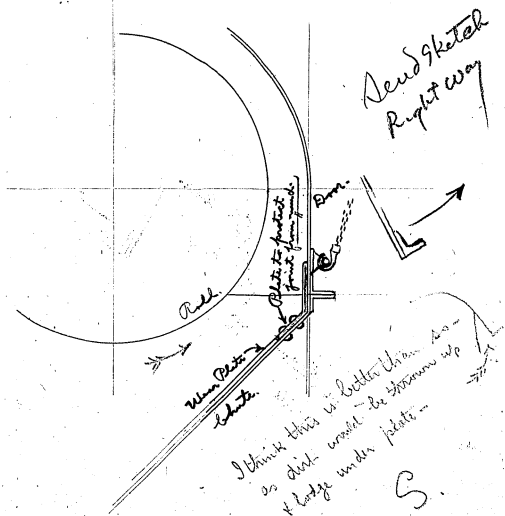 Send Sketch
Right Way
Door.
Plate to protect
joint from mud.
Roll.
Wear Plate
Chute.
I think this is better than so—
as dirt would be thrown up
& lodge under plate—
S.